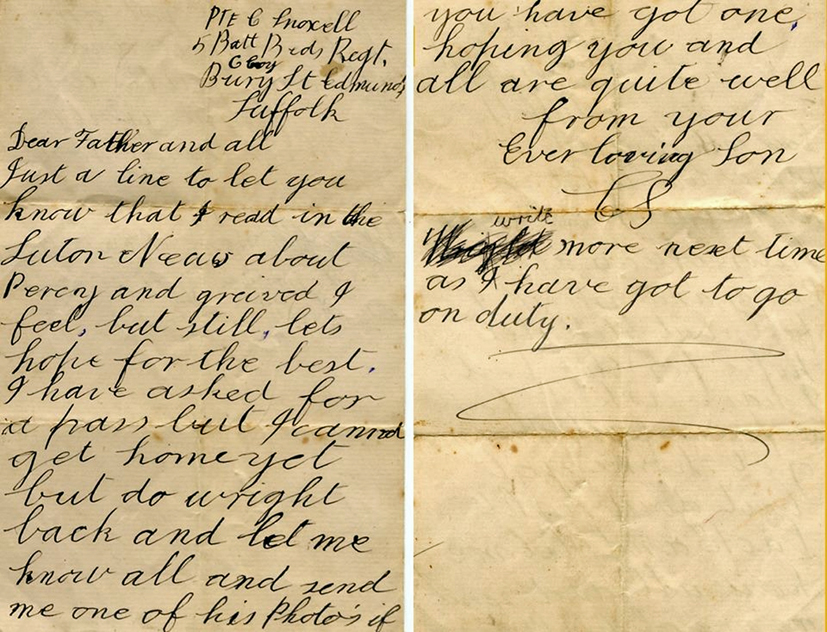 Pte C Snoxell
5 Batt Beds Regt.
G Coy
Bury St Edmunds
Suffolk
Dear Father and all
Just a line to let you
know that I read in the
Luton News about
Percy and greived I
feel, but still, lets
hope for the best.
I have asked for
a pass but I cannot
get home yet
but do wright
back and let me
know all and send
me one of his Photo's if
you have got one,
hoping you and
all are quite well
from your
Ever loving Son
CS
write
more next time
as I have got to go
on duty.